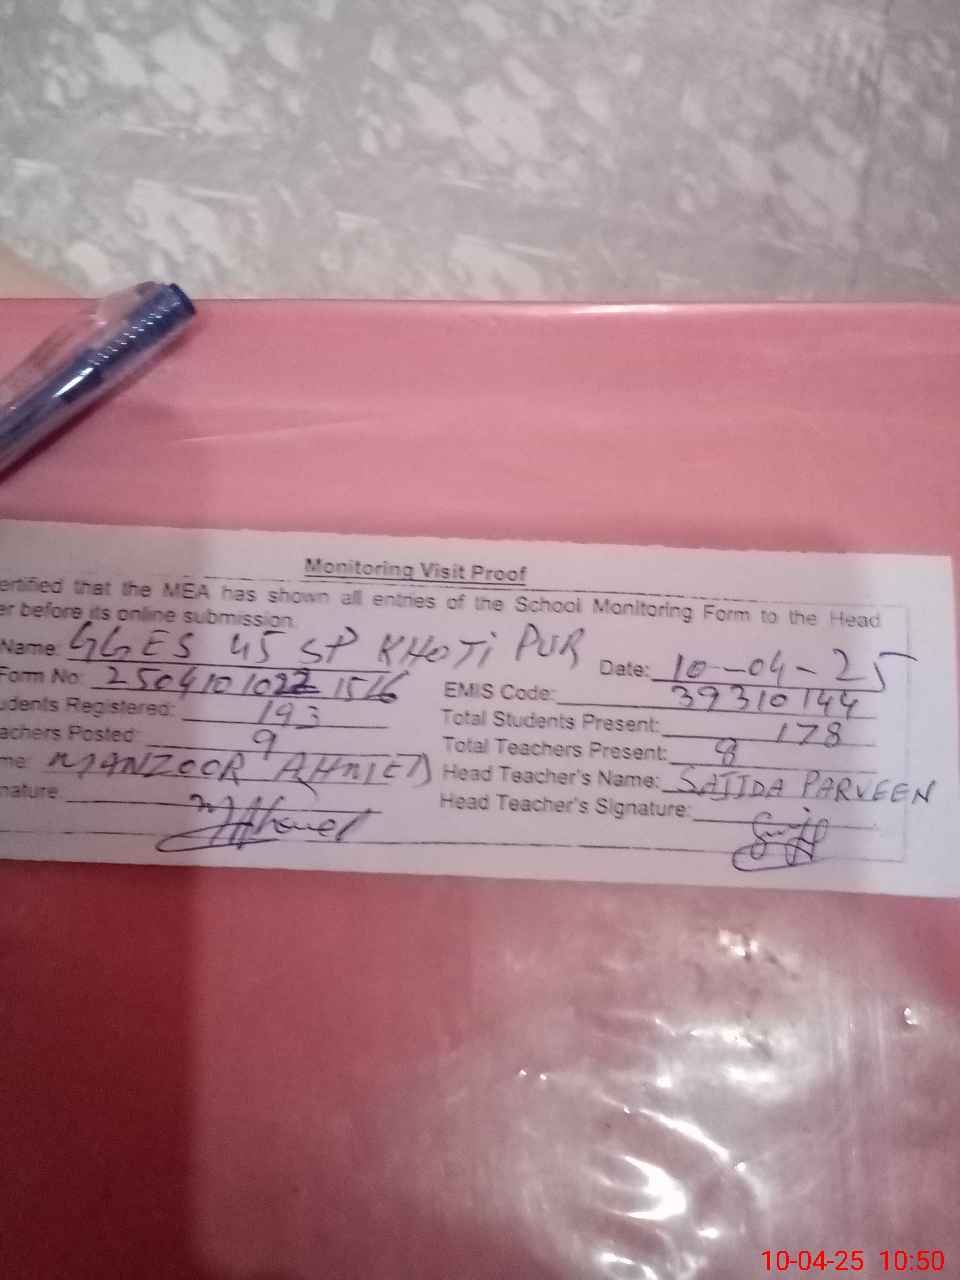 Monitoring Visit Proof
ertified that the MEA has shown all entries of the School Monitoring Form to the Head
er before its online submission.
Name: GGES 45 SP KHOTI PUR Date: 10-04-25
Form No: 2504101022 1516 EMIS Code: 39310144
udents Registered: 193 Total Students Present: 178
achers Posted: 9 Total Teachers Present: 8
me: MANZOOR AHMED Head Teacher's Name: SAJIDA PARVEEN
nature: Head Teacher's Signature:
10-04-25 10:50